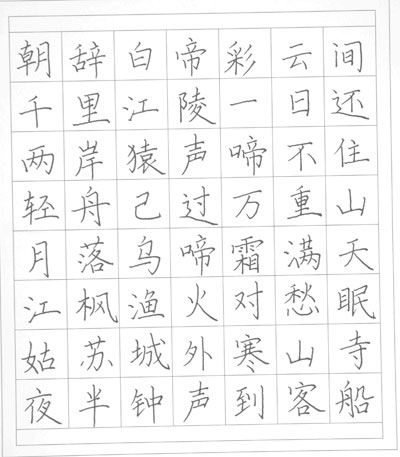 朝辞白帝彩云间
千里江陵一日还
两岸猿声啼不住
轻舟己过万重山
月落乌啼霜满天
江枫渔火对愁眠
姑苏城外寒山寺
夜半钟声到客船